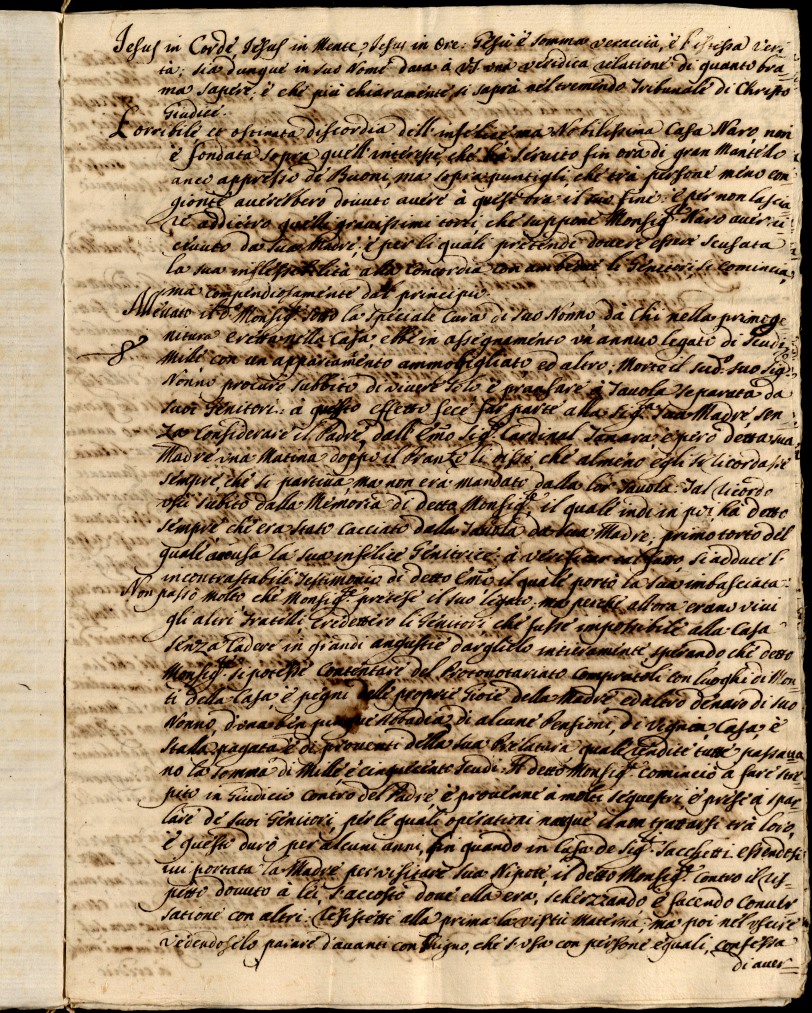 Jesus in Corde, Jesus in Mente, Jesus in Ore. Giesù è somma veracità, è l'istessa Veri
tà; sia dunque in suo Nome data à VS una veridica relatione di quanto bra
ma sapere, e che più chiaramente si saprà nel tremendo Tribunale di Christo
Giudice.
L'orribile et ostinata discordia dell'infelice ma Nobilissima Casa Naro, non
è fondata sopra quell'interesse, che hà servito fin ora di gran Mantello
anco appresso de Buoni, ma sopra puntigli, che trà persone meno con
gionte averebbero dovuto avere à quest'ora il suo fine: e per non lascia
re addietro quelli gravissimi torti, che suppone Monsig.r Naro aver ri
cevuto da sua Madre, e per li quali pretende dovere essere scusata
la sua inflessibilità alla Concordia con ambedue li Genitori, si comincia,
ma compendiosamente dal principio.
Allevato il d.o Monsig.r sotto la speciale Cura di suo Nonno da chi nella primoge
nitura eretta nella Casa, ebbe in assegnamento un annuo legato di Scudi
Mille con un appartamento ammobigliato ed altro; Morto il sud.o suo Sig.r
Nonno procurò subbito di vivere solo e pransare à Tavola separata da
suoi Genitori: à questo effetto fece far parte alla Sig.ra sua Madre sen
za considerare il Padre, dall'Emo Sig.r Cardinal Tanara, e però detta sua
Madre una Matina doppo il Pranzo li disse, che almeno egli si ricordasse
sempre che si partiva, ma non era mandato dalla lor Tavola. Tal ricordo
uscì subito dalla Memoria di detto Monsig.r, il quale indi in poi hà detto
sempre che era stato Cacciato dalla Tavola da sua Madre; primo torto del
quale accusa la sua infelice Genitrice: à verificar tal fatto, si adduce l'
incontrastabile Testimonio di detto Emo il quale portò la sua imbasciata.
Non passò molto che Monsig.r pretese il suo legato, ma perche allora erano vivi
gli altri Fratelli Credettero li Genitori che fusse impossibile alla Casa
senza Cadere in grandi angustie darglielo intieramente sperando che detto
Monsig.r si potesse Contentare del Protonotariato Compratoli con luoghi di Mon
ti della Casa e pegni delle proprie Gioie della Madre ed altro denaro di suo
Nonno, d'una ben pingue Abbadia, di alcune Pensioni, di Vigna, Casa, e
Stalla pagata e di proventi della sua Prelatura quali rendite tutte passava
no la somma di Mille e cinquecento Scudi. Il detto Monsig.r cominciò a fare stre
pito in Giudicio Contro del Padre e provenne à molti sequestri, e prese à spar
lare de' suoi Genitori, per le quali operationi nacque il non trattarsi trà loro,
e questo durò per alcuni anni, fin quando in Casa de Sig.ri Sacchetti essendosi
ivi portata la Madre per visitare sua Nipote il detto Monsig.r contro il ris
petto dovuto à lei, s'accostò dove ella era, scherzando e facendo Conver
satione con altri: resistette alla prima la virtù Materna, ma poi nel uscire
vedendoselo parare d'avanti con Ghigno, che s'usa con persone eguali, confessa
di aver